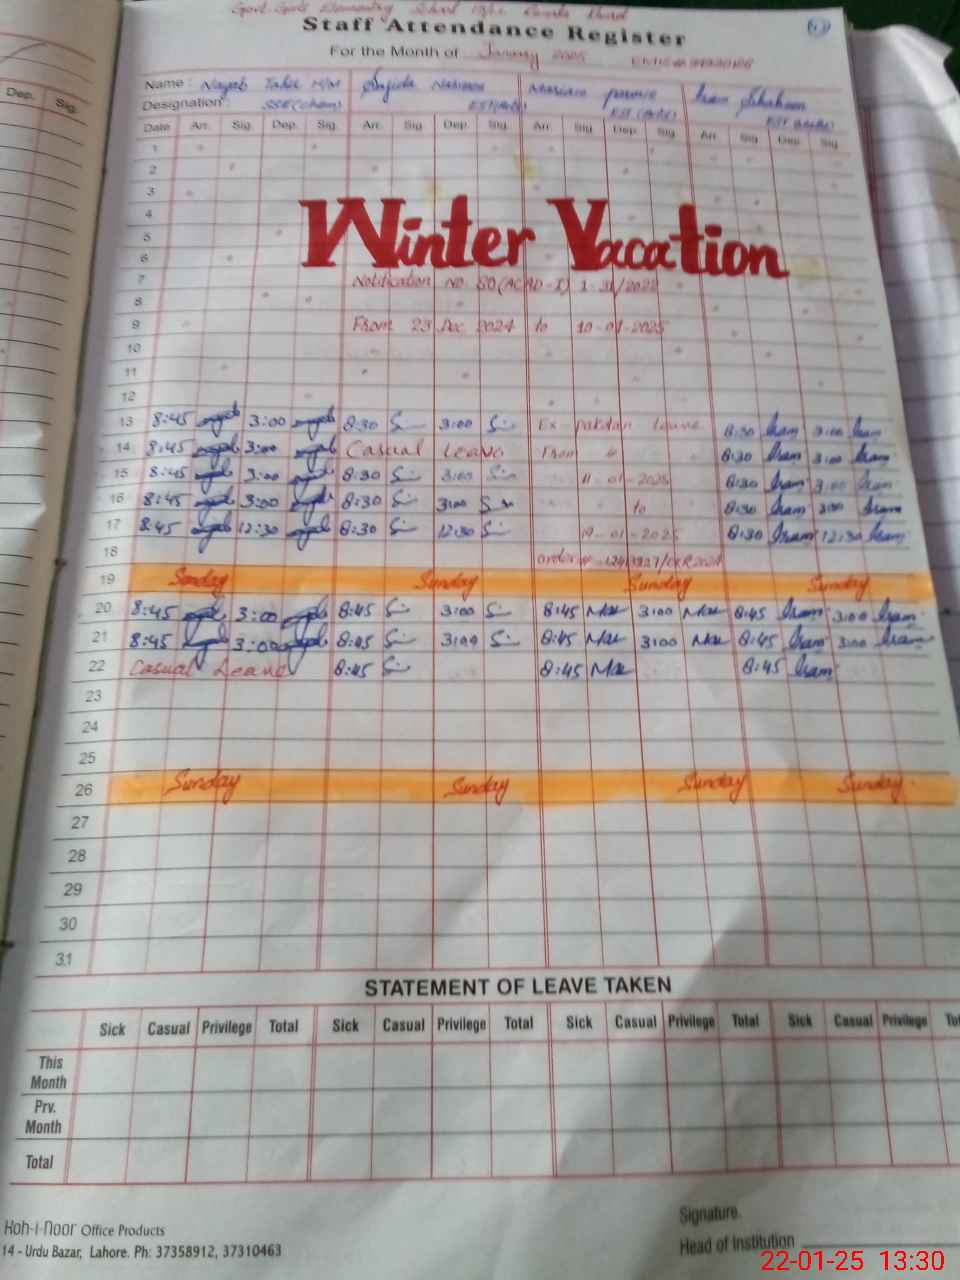 Govt. Girls Elementary School
Staff Attendance Register
For the Month of January 2025
Name : Nayab Tahir H/M Sajida Nasreen Mariam Iram Shaheen
Designation : SSE(Chem) EST(Arts) EST (Arts) EST (Arts)
Date Arr. Sig. Dep. Sig. Arr. Sig. Dep. Sig. Arr. Sig. Dep. Sig. Arr. Sig. Dep. Sig.
1
2
3
4
Winter Vacation
5
6
7 Notification No 80(ACAD-I) 1-31/2022
8
9 From 23 Dec 2024 to 10-01-2025
10
11
12
13 8:45 3:00 8:30 3:00 Ex pakstan leave 8:30 Iram 3:00 Iram
14 8:45 3:00 Casual Leave From 8:30 Iram 3:00 Iram
15 8:45 3:00 8:30 3:00 11-01-2025 8:30 Iram 3:00 Iram
16 8:45 3:00 8:30 3:00 to 8:30 Iram 3:00 Iram
17 8:45 12:30 8:30 12:30 19-01-2025 8:30 Iram 12:30 Iram
18 order
19 Sunday Sunday Sunday Sunday
20 8:45 3:00 8:45 3:00 8:45 3:00 8:45 Iram 3:00 Iram
21 8:45 3:00 8:45 3:00 8:45 3:00 8:45 Iram 3:00 Iram
22 Casual Leave 8:45 8:45 8:45 Iram
23
24
25
26 Sunday Sunday Sunday Sunday
27
28
29
30
31
STATEMENT OF LEAVE TAKEN
Sick Casual Privilege Total Sick Casual Privilege Total Sick Casual Privilege Total Sick Casual Privilege Tot
This Month
Prv. Month
Total
Koh-i-noor Office Products
14 - Urdu Bazar, Lahore. Ph: 37358912, 37310463
Signature.
Head of Institution
22-01-25 13:30
Dep. Sig.